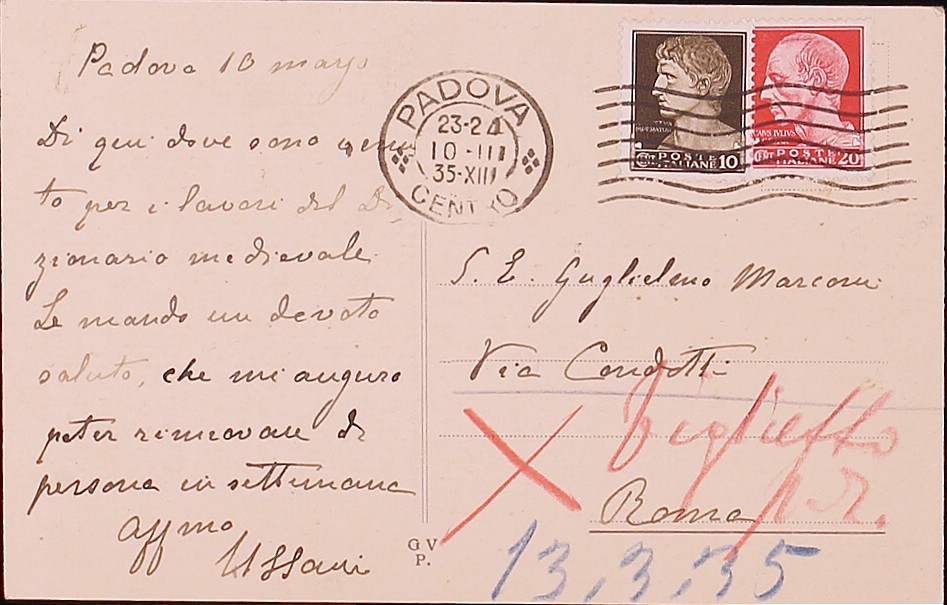 Padova 10 marzo
Di qui dove sono venu
to per i lavori del Di
zionario medievale
Le mando un devoto
saluto, che mi auguro
poter rinnovare di
persona in settimana
affmo
Ussani
PADOVA
23-24
10-III
35-XIII
CENTRO
IMPERATOR
POSTE
ITALIANE
10
CAIVS IVLIVS
POSTE
ITALIANE
20
S. E. Guglielmo Marconi
Via Condotti
Roma
biglietto
p.r.
13.3.35
G V
P.